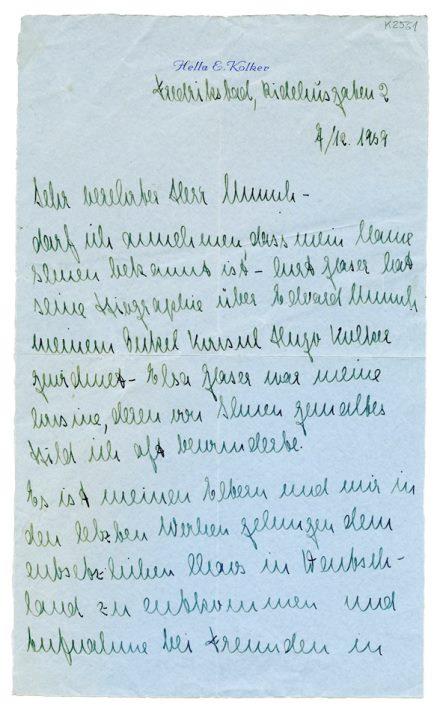 K2561
Hella E. Kolker
Fredrikstad, Ridehusgaten 2
7/12. 1939
Sehr verehrter Herr Munch –
darf ich annehmen dass mein Name
Ihnen bekannt ist – Curt Glaser hat
seine Biographie über Edvard Munch
meinem Onkel Konsul Hugo Kolker
gewidmet – Elsa Glaser war meine
Cousine, deren von Ihnen gemaltes
Bild ich oft bewunderte.
Es ist meinen Eltern und mir in
den letzten Wochen gelungen dem
entsetzlichen Chaos in Deutsch-
land zu entkommen und
Aufnahme bei Freunden in